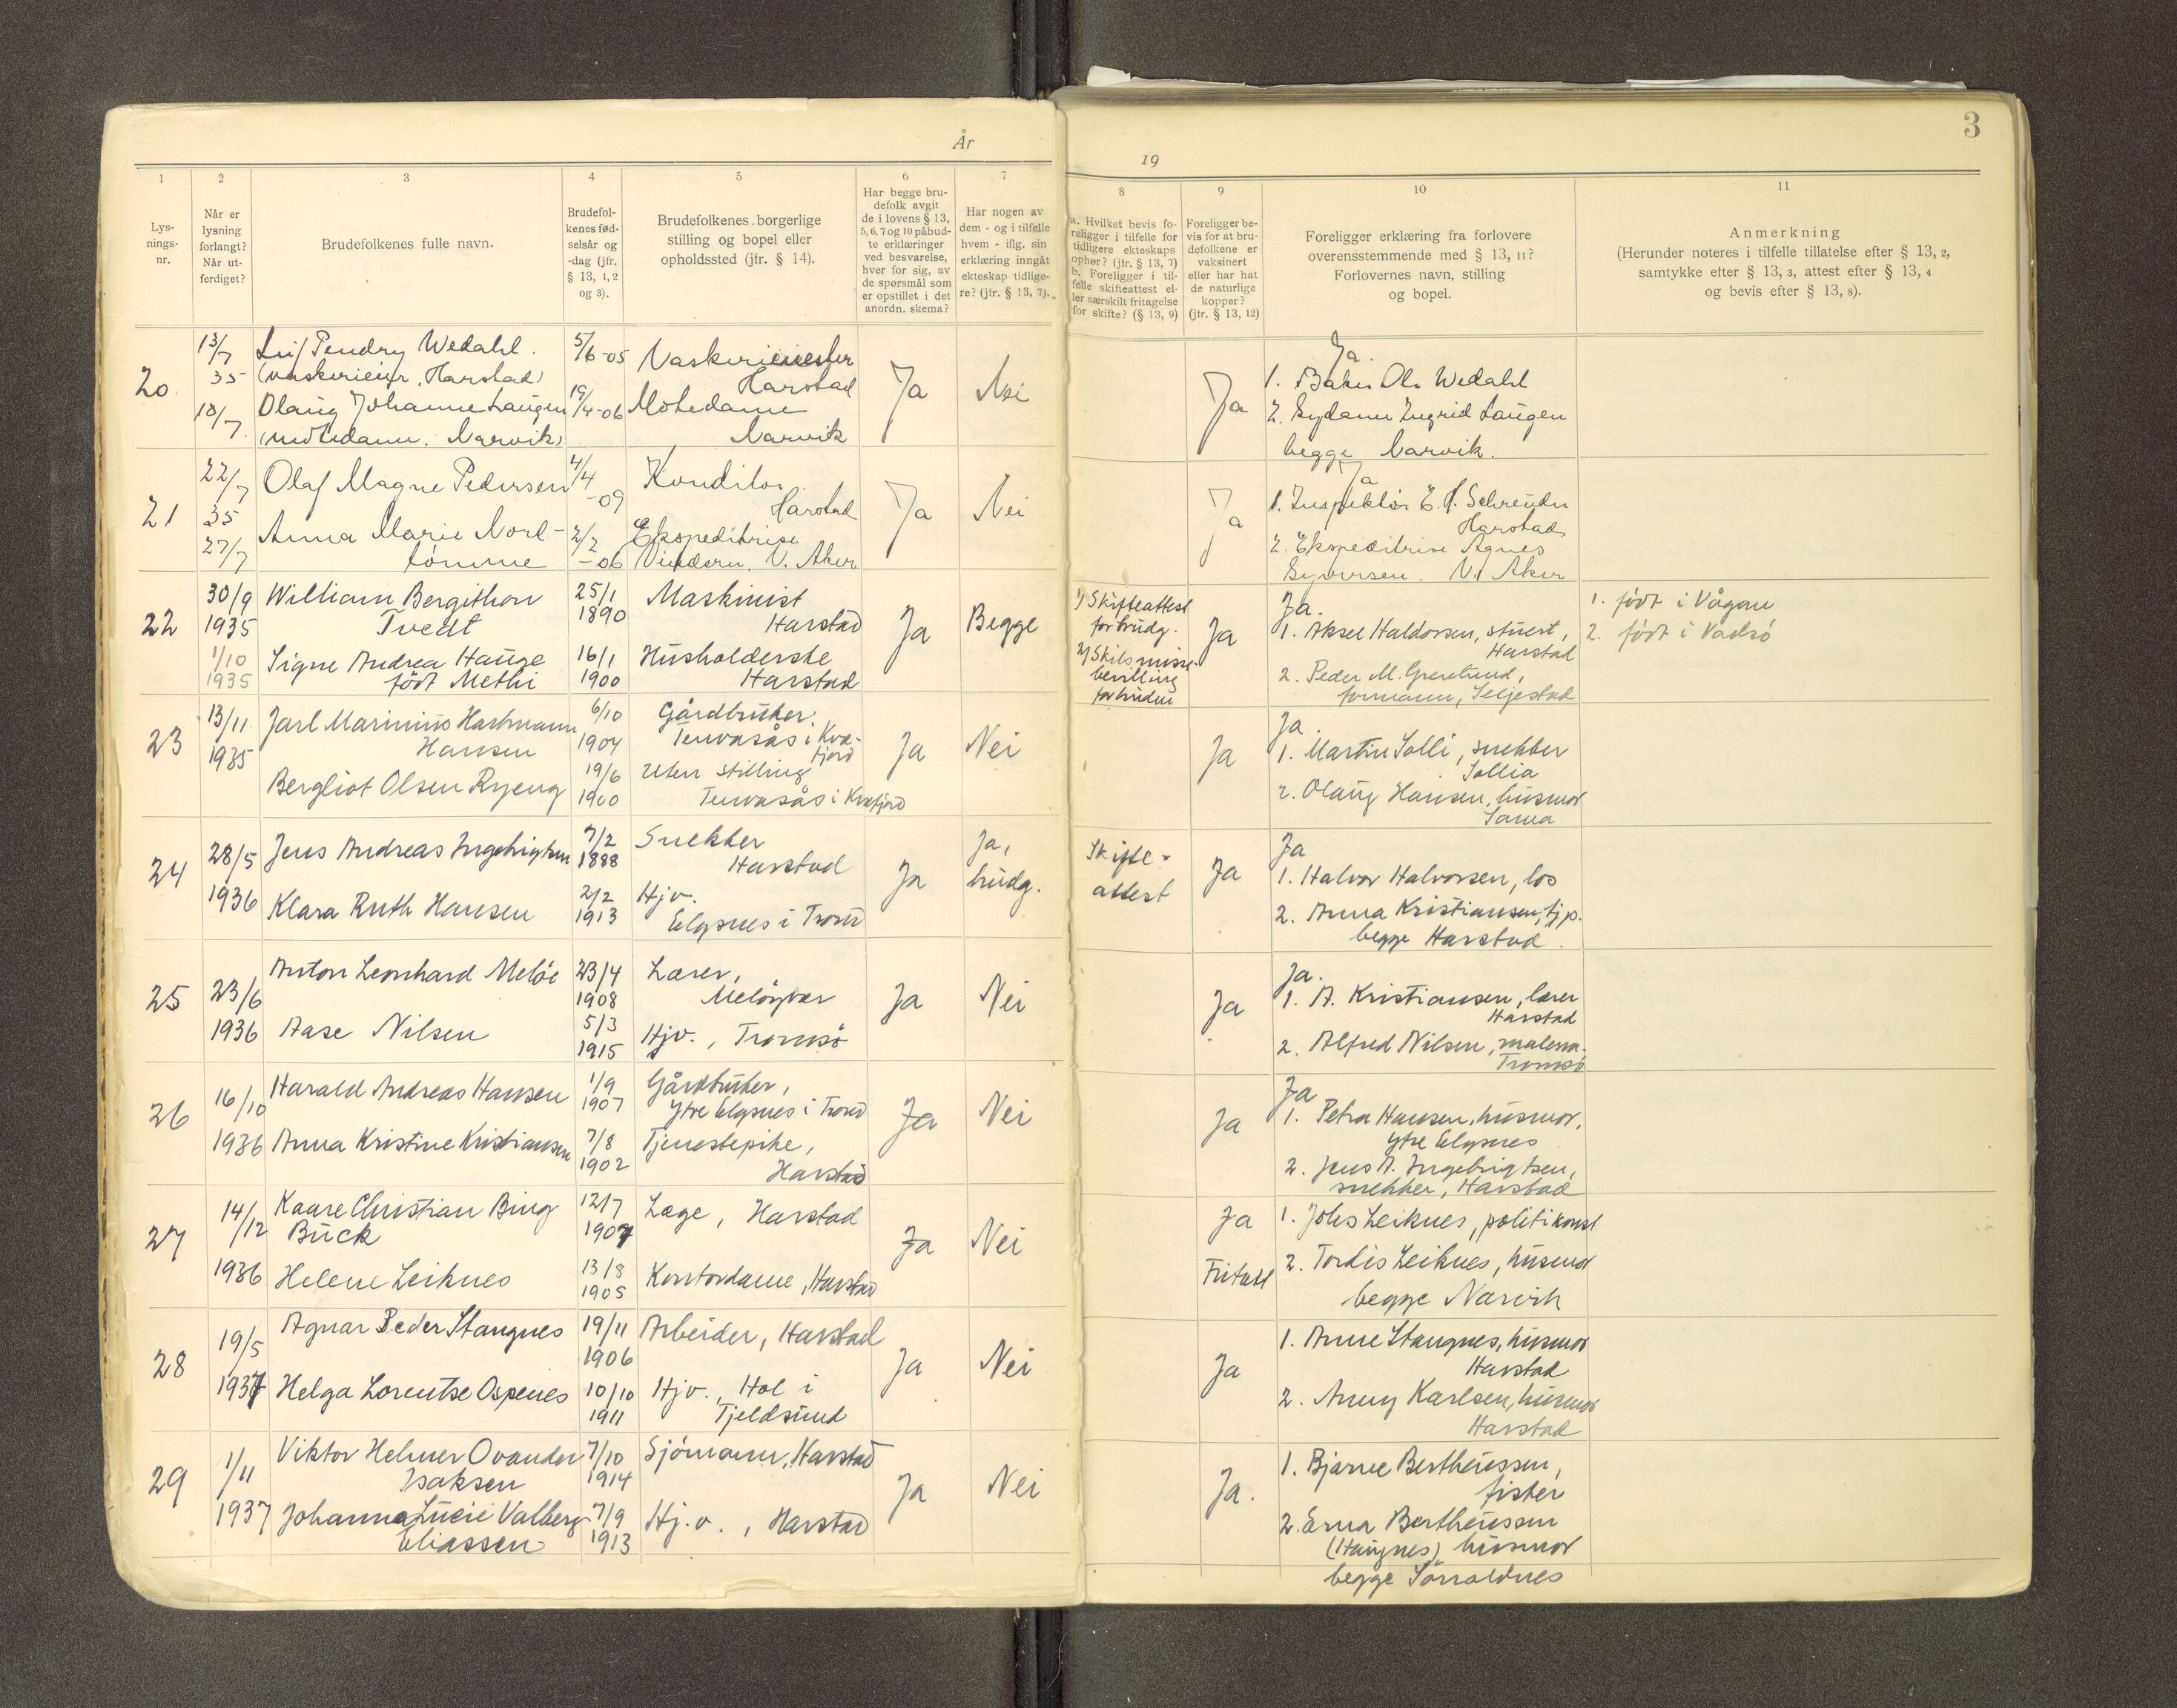 År
19
3
1
2
3
4
5
6
7
8
9
10
11
Lys-
nings-
nr.
Når er
lysning
forlangt?
Når ut-
ferdiget?
Brudefolkenes fulle navn.
Brudefol-
kenes fød-
selsår og
-dag (jfr.
§ 13, 1, 2
og 3).
Brudefolkenes borgerlige
stilling og bopel eller
opholdssted (jfr. § 14).
Har begge bru-
defolk avgit
de i lovens § 13,
5, 6, 7 og 10 påbud-
te erklæringer
ved besvarelse,
hver for sig, av
de spørsmål som
er opstillet i det
anordn. skema?
Har nogen av
dem - og i tilfelle
hvem - iflg. sin
erklæring inngåt
ekteskap tidlige-
re? (jfr. § 13, 7).
a. Hvilket bevis fo-
religger i tilfelle for
tidligere ekteskaps
ophør? (jfr. § 13, 7)
b. Foreligger i til-
felle skifteattest el-
ler særskilt fritagelse
for skifte? (§ 13, 9)
Foreligger be-
vis for at bru-
defolkene er
vaksinert
eller har hat
de naturlige
kopper?
(jfr. § 13, 12)
Foreligger erklæring fra forlovere
overensstemmende med § 13, 11?
Forlovernes navn, stilling
og bopel.
Anmerkning
(Herunder noteres i tilfelle tillatelse efter § 13, 2,
samtykke efter § 13, 3, attest efter § 13, 4
og bevis efter § 13, 8).
20
13/7
35
18/7
Leif Pendry Wedahl.
Harstad)
Olaug Johanne Laugen
Narvik)
5/6-05
19/4-06
Vaskerimester
Harstad
Motedame
Narvik
Ja
Nei
Ja
Ja.
1. Baker Ole Wedahl
2. Sydame Ingrid Laugen
begge Narvik.
21
22/7
35
27/7
Olaf Magne Pedersen
Anna Marie Nord-
tømme
4/4
-09
2/2
-06
Konditor
Harstad
Ekspeditrise
Vindern. V. Aker
Ja
Nei
Ja
Ja
1. Inspektør E. H. Schrøuder
Harstad
2. Ekspeditrise Agnes
Syversen. V. Aker
22
30/9
1935
1/10
1935
William Bergithon
Tvedt
Signe Andrea Hauge
født Methi
25/1
1890
16/1
1900
Maskinist
Harstad
Husholderske
Harstad
Ja
Begge
1) Skifteattest
for brudg.
2) Skilsmisse-
bevilling
for bruden
Ja
Ja.
1. Aksel Haldorsen, stuert,
Harstad
2. Peder M. Grønlund,
formann, Seljestad
1. født i Vågan
2. født i Vadsø
23
13/11
1935
Jarl Marinius Hartmann
Hansen
Bergliot Olsen Ryeng
6/10
1904
19/6
1900
Gårdbruker.
Tennvasås i Kvæ-
fjord
Uten stilling
Tennvasås i Kvæfjord
Ja
Nei
Ja
Ja.
1. Martin Solli, snekker
Sollia
2. Olaug Hansen, husmor
Sama
24
28/5
1936
Jens Andreas Ingebrigtsen
Klara Ruth Hansen
7/2
1888
2/2
1913
Snekker
Harstad
Hjv.
Elgsnes i Trond
Ja
Ja,
brudg.
Skifte-
attest
Ja
Ja
1. Halvor Halvorsen, los
2. Anna Kristiansen, tjp.
begge Harstad.
25
23/6
1936
Anton Leonhard Meløe
Aase Nilsen
23/4
1908
5/3
1915
Lærer,
Meløyvær
Hjv., Tromsø
Ja
Nei
Ja
Ja.
1. A. Kristiansen, lærer
Harstad
2. Alfred Nilsen, malerm.
Tromsø
26
16/10
1936
Harald Andreas Hansen
Anna Kristine Kristiansen
1/9
1907
7/8
1902
Gårdbruker,
Ytre Elgsnes i Trond
Tjenestepike,
Harstad
Ja
Nei
Ja
Ja
1. Petra Hansen, husmor,
Ytre Elgsnes
2. Jens A. Ingebrigtsen,
snekker, Harstad
27
14/12
1936
Kaare Christian Bing
Bück
Helene Leiknes
12/7
1907
13/8
1905
Læge, Harstad
Kontordame, Harstad
Ja
Nei
Ja
Fritatt
1. Johs Leiknes, politikonst
2. Tordis Leiknes, husmor
begge Narvik
28
19/5
1937
Agnar Peder Stangnes
Helga Lorentse Ospenes
19/11
1906
10/10
1911
Arbeider, Harstad
Hjv., Hol i
Tjeldsund
Ja
Nei
Ja
1. Anne Stangnes, husmor
Harstad
2. Anny Karlsen, husmor
Harstad
29
1/11
1937
Viktor Helmer Ovander
Isaksen
Johanna Lucie Valberg
Eliassen
7/10
1914
7/9
1913
Sjømann, Harstad
Hj.v., Harstad
Ja
Nei
Ja.
1. Bjarne Bertheussen,
fisker
2. Erna Bertheussen
(Haugnes) husmor
begge Sørrollnes